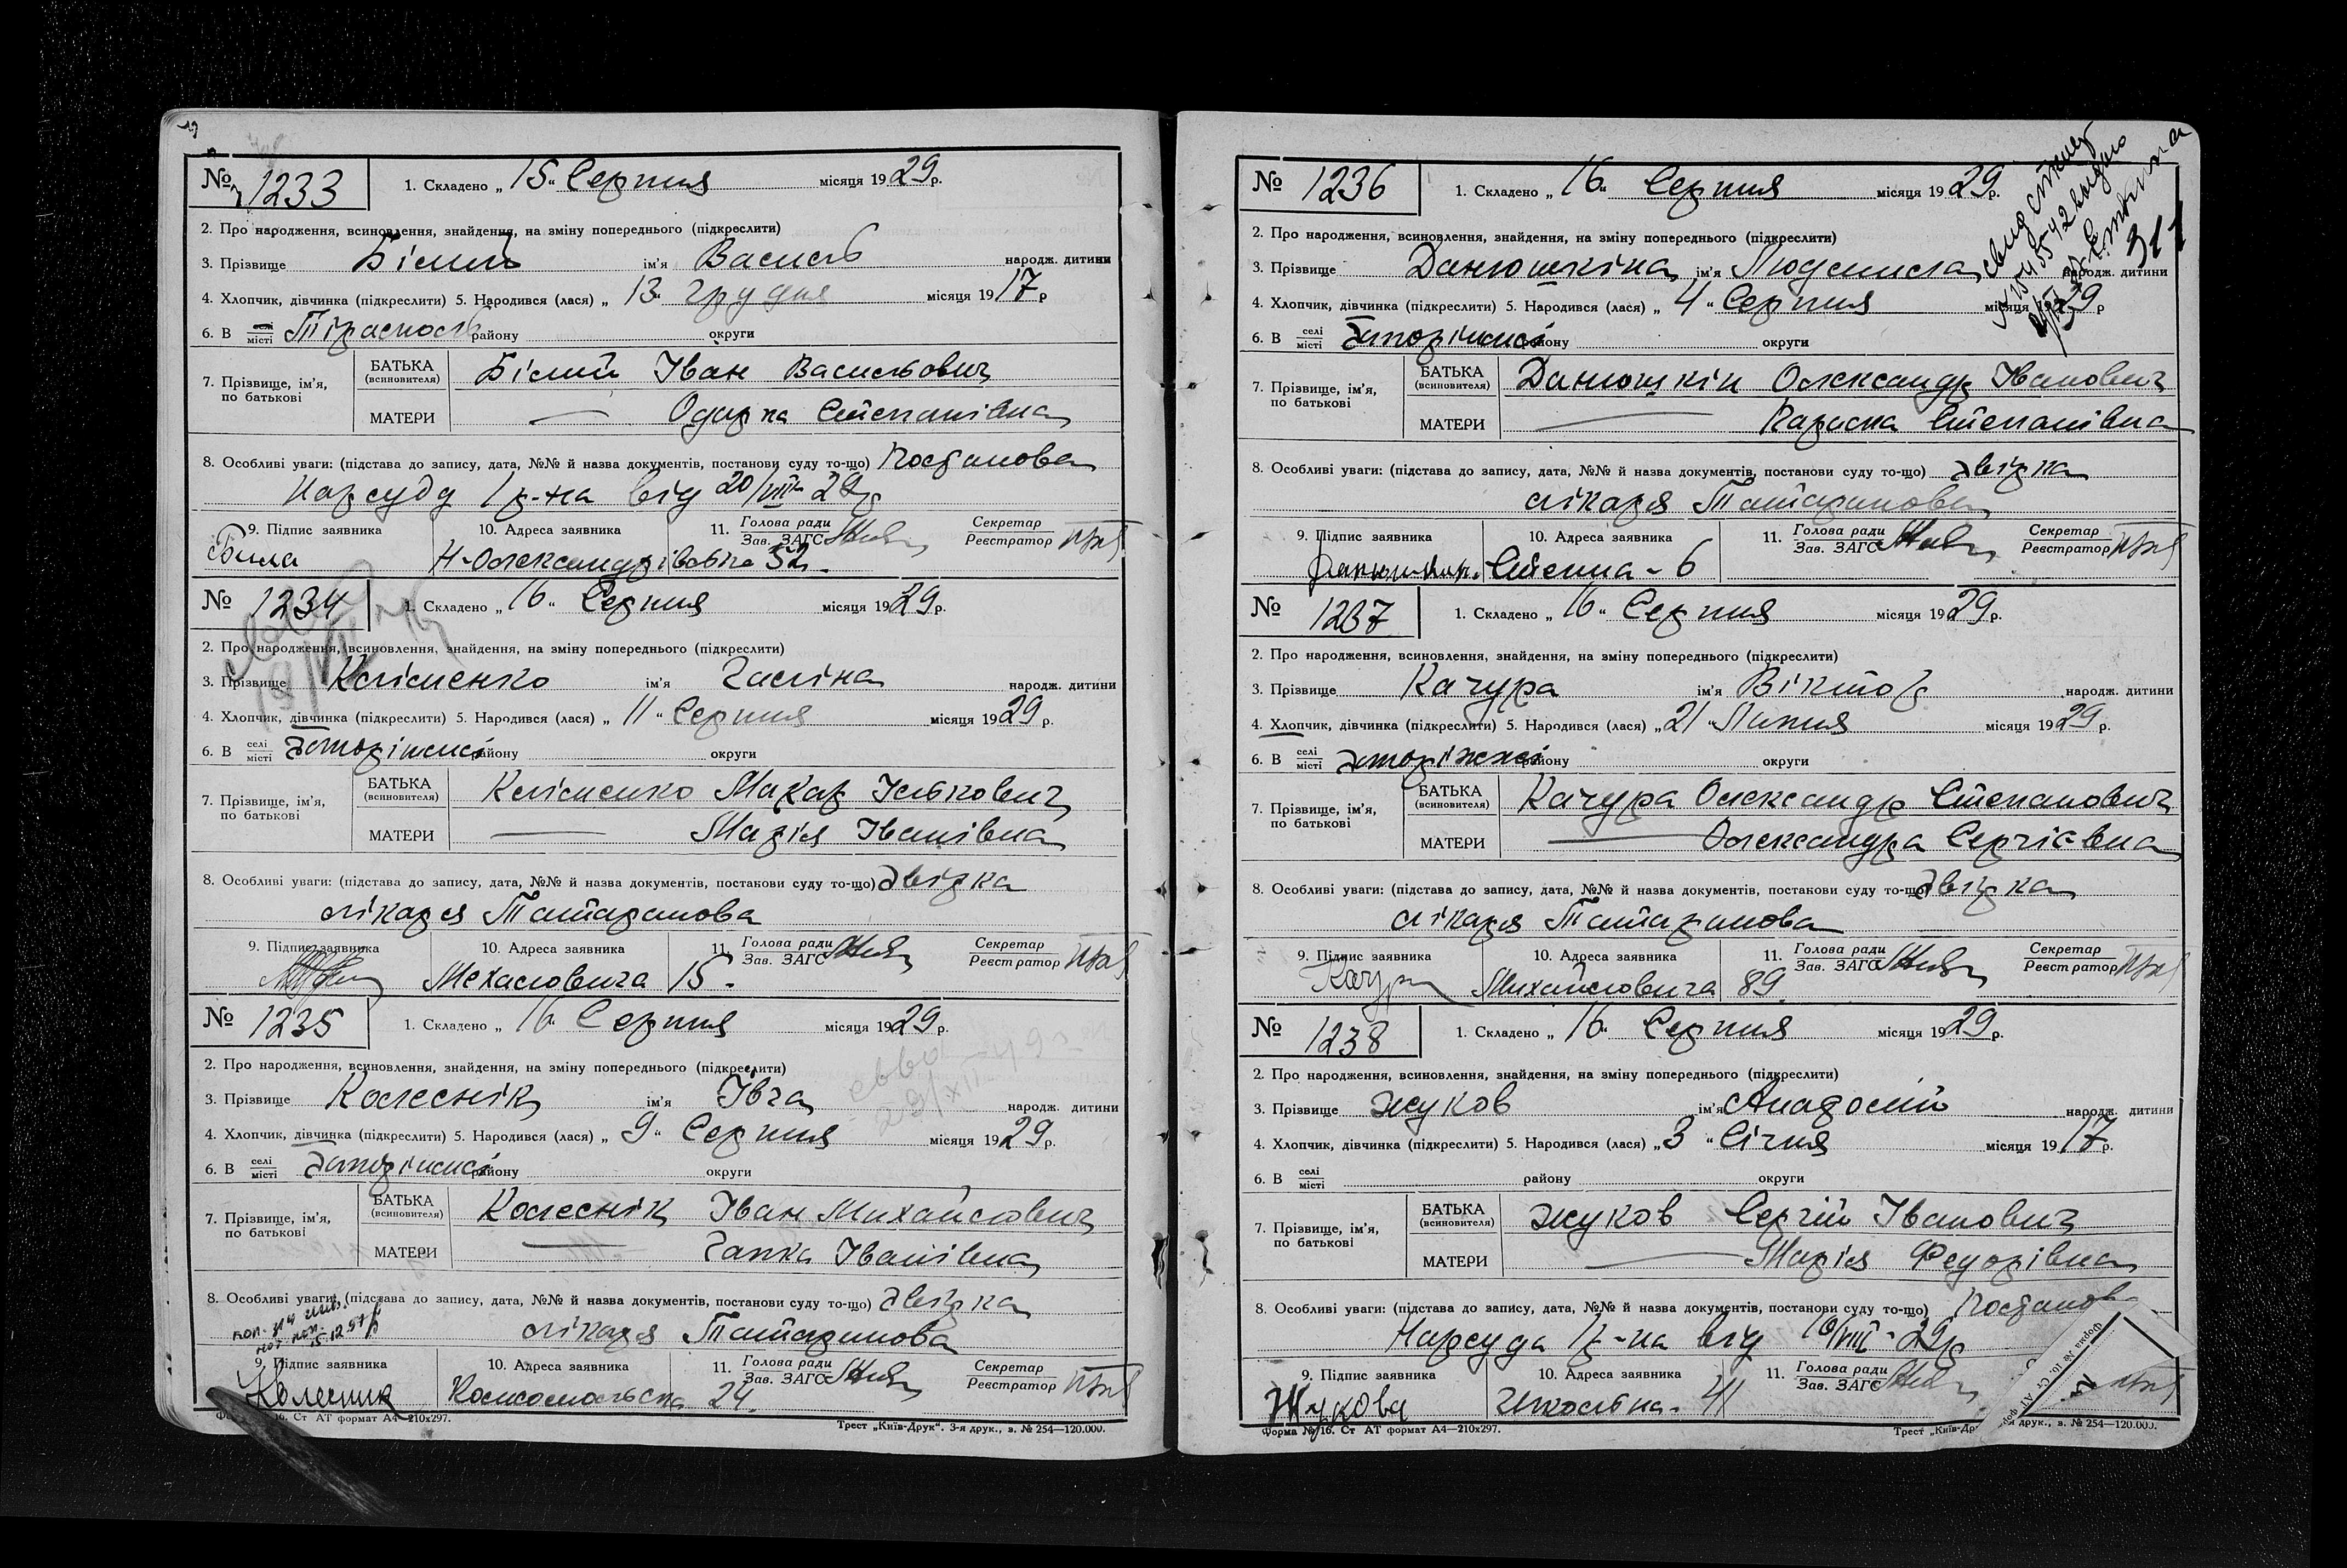 № 1233 1. Складено „ 15 “ Серпня місяця 1929 р.
2. Про народження, всиновлення, знайдення, на зміну попереднього (підкреслити)
3. Прізвище Білий ім'я Василь народж. дитини
4. Хлопчик, дівчинка (підкреслити) 5. Народився (лася) „ 13 “ грудня місяця 1917 р
6. В селі місті Тірасполь району округи
7. Прізвище, ім'я, по батькові БАТЬКА (всиновителя) Білий Іван Васильович
МАТЕРИ — Одарка Степанівна
8. Особливі уваги: (підстава до запису, дата, №№ й назва документів, постанови суду то-що) Постанова
Нарсуду 1 р-на від 20/VIII 29р
9. Підпис заявника 10. Адреса заявника 11. Голова ради Зав. ЗАГС Секретар Реєстратор
Біла Н-Олександрівська 52.
№ 1234 1. Складено „ 16 “ Серпня місяця 1929 р.
2. Про народження, всиновлення, знайдення, на зміну попереднього (підкреслити)
3. Прізвище Клименко ім'я Галіна народж. дитини
4. Хлопчик, дівчинка (підкреслити) 5. Народився (лася) „ 11 “ Серпня місяця 1929 р.
6. В селі місті Запоріжжі району округи
7. Прізвище, ім'я, по батькові БАТЬКА (всиновителя) Клименко Макар Ількович
МАТЕРИ — Марія Іванівна
8. Особливі уваги: (підстава до запису, дата, №№ й назва документів, постанови суду то-що) Звірка
лікаря Татаринова
9. Підпис заявника 10. Адреса заявника 11. Голова ради Зав. ЗАГС Секретар Реєстратор
15.
№ 1235 1. Складено „ 16 “ Серпня місяця 1929 р.
2. Про народження, всиновлення, знайдення, на зміну попереднього (підкреслити)
3. Прізвище Колеснік ім'я Івга народж. дитини
4. Хлопчик, дівчинка (підкреслити) 5. Народився (лася) „ 9 “ Серпня місяця 1929 р.
6. В селі місті Запоріжжі району округи
7. Прізвище, ім'я, по батькові БАТЬКА (всиновителя) Колеснік Іван Михайлович
МАТЕРИ — Ганка Іванівна
8. Особливі уваги: (підстава до запису, дата, №№ й назва документів, постанови суду то-що) Звірка
лікаря Татаринова
9. Підпис заявника 10. Адреса заявника 11. Голова ради Зав. ЗАГС Секретар Реєстратор
Колесник Комсомольська 24.
Форма № 16. Ст АТ формат А4—210х297. Трест „Київ-Друк“. 3-я друк., з. № 254—120.000.
№ 1236 1. Складено „ 16 “ Серпня місяця 1929 р.
2. Про народження, всиновлення, знайдення, на зміну попереднього (підкреслити)
3. Прізвище Данюшкіна ім'я Людмила народж. дитини
4. Хлопчик, дівчинка (підкреслити) 5. Народився (лася) „ 4 “ Серпня місяця 1929 р
6. В селі місті Запоріжжі району округи
7. Прізвище, ім'я, по батькові БАТЬКА (всиновителя) Данюшкін Олександр Іванович
МАТЕРИ — Лариса Степанівна
8. Особливі уваги: (підстава до запису, дата, №№ й назва документів, постанови суду то-що) Звірка
лікаря Татаринова
9. Підпис заявника 10. Адреса заявника 11. Голова ради Зав. ЗАГС Секретар Реєстратор
Степна - 6
№ 1237 1. Складено „ 16 “ Серпня місяця 1929 р.
2. Про народження, всиновлення, знайдення, на зміну попереднього (підкреслити)
3. Прізвище Качура ім'я Віктор народж. дитини
4. Хлопчик, дівчинка (підкреслити) 5. Народився (лася) „ 21 “ Липня місяця 1929 р.
6. В селі місті Запоріжжі району округи
7. Прізвище, ім'я, по батькові БАТЬКА (всиновителя) Качура Олександр Степанович
МАТЕРИ — Олександра Сергієвна
8. Особливі уваги: (підстава до запису, дата, №№ й назва документів, постанови суду то-що) Звірка
лікаря Татаринова
9. Підпис заявника 10. Адреса заявника 11. Голова ради Зав. ЗАГС Секретар Реєстратор
Качура Михайловича 89
№ 1238 1. Складено „ 16 “ Серпня місяця 1929 р.
2. Про народження, всиновлення, знайдення, на зміну попереднього (підкреслити)
3. Прізвище Жуков ім'я народж. дитини
4. Хлопчик, дівчинка (підкреслити) 5. Народився (лася) „ 3 “ Січня місяця 1917 р.
6. В селі місті району округи
7. Прізвище, ім'я, по батькові БАТЬКА (всиновителя) Жуков Сергій Іванович
МАТЕРИ — Марія Федорівна
8. Особливі уваги: (підстава до запису, дата, №№ й назва документів, постанови суду то-що) Постанов
Нарсуда 1 р-на від 10/VIII - 29р
9. Підпис заявника 10. Адреса заявника 11. Голова ради Зав. ЗАГС
Жукова Школьна - 41
Форма № 16. Ст АТ формат А4—210х297. Трест „Київ-Др я друк., з. № 254—120.000.